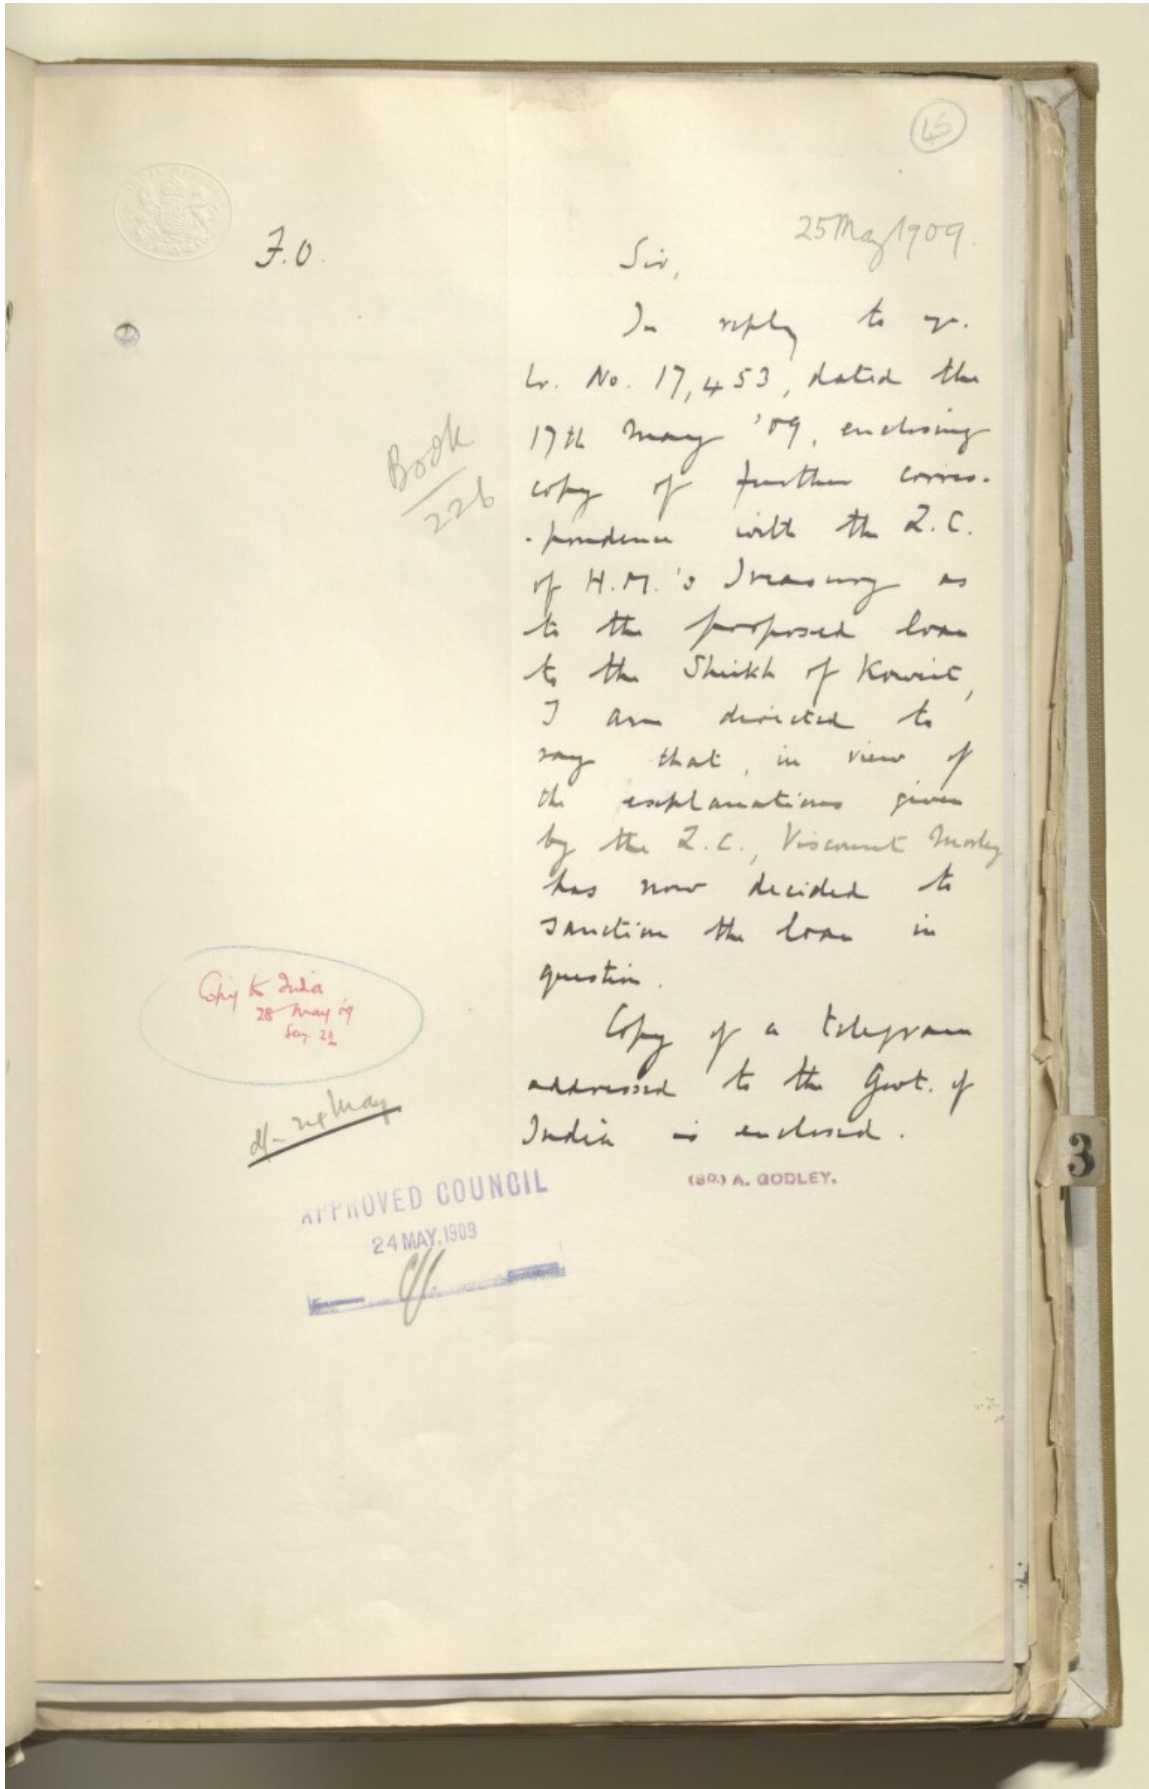 45
25 May 1909.
F.O.
Sir,
In reply to yr.
Lr. No. 17,453, dated the
17th May '09, enclosing
copy of further corres-
-pondence with the L.C.
of H.M.'s Treasury as
to the proposed loan
to the Sheikh of Koweit,
I am directed to
say that, in view of
the explanations given
by the L.C., Viscount Morley
has now decided to
sanction the loan in
question.
Copy of a telegram
addressed to the Govt. of
India is enclosed.
(SD.) A. GODLEY.
Book
226
Copy to India
28 May 09
Sec 21
May
APPROVED COUNCIL
24 MAY. 1909
3